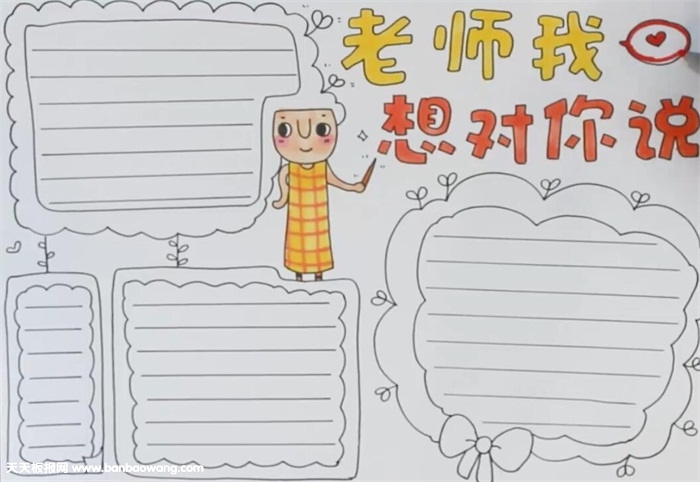 老师我
想对你说
天天板报网 www.banbaowang.com